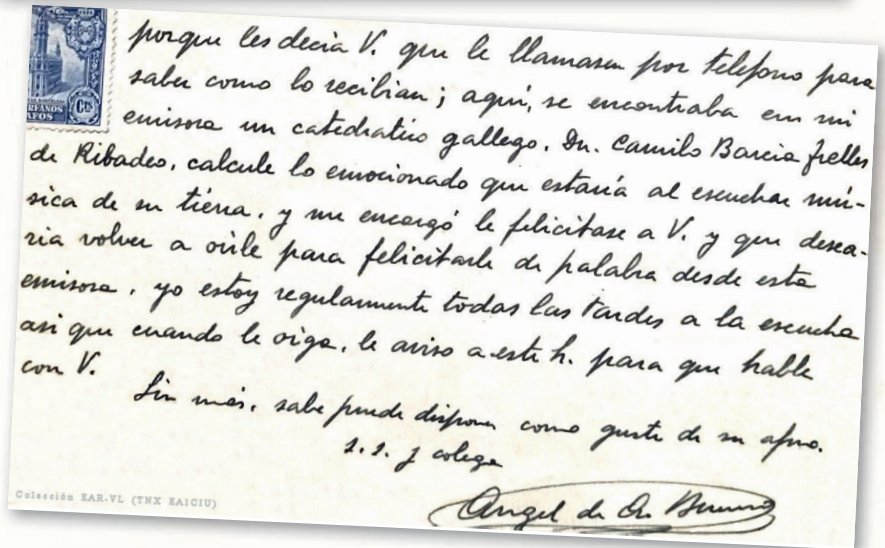 porque les decia V. que le llamasen por telefono para
saber como lo recibian; aquí, se encontraba en mi
emisora un catedratico gallego, Dn. Camilo Barcia Trelles
de Ribadeo, calcule lo emocionado que estaría al escuchar mú-
sica de su tierra, y me encargó le felicitase a V. y que desea-
ria volver a oirle para felicitarle de palabra desde esta
emisora, yo estoy regularmente todas las tardes a la escucha
asi que cuando le oiga, le aviso a este h. para que hable
con V.
Sin más, sabe puede disponer como guste de su afmo.
s. s. y colega
Angel de
RFANOS
AFOS
Cts
Colección EAR-VL (TNX EA1CIU)